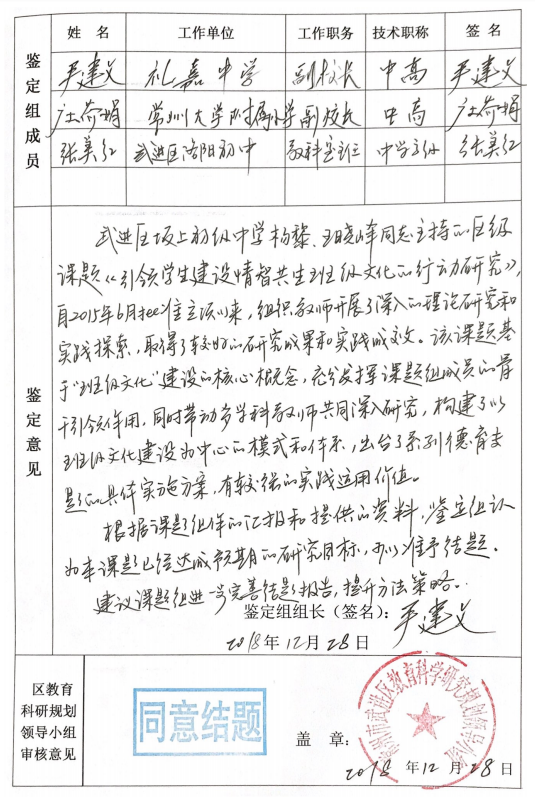 鉴定组成员
姓 名 工作单位 工作职务 技术职称 签 名
严建义 礼嘉中学 副校长 中高 严建义
常州大学附属小学 副校长 中高
张美红 武进区洛阳初中 教科室主任 中学高级 张美红
鉴定意见
武进区坂上初级中学杨黎、王晓峰同志主持的区级
课题《引领学生建设情智共生班级文化的行动研究》,
自2015年6月批准立项以来,组织教师开展了深入的理论研究和
实践探索,取得了较好的研究成果和实践成效。该课题基
于“班级文化”建设的核心概念,充分发挥课题组成员的骨
干引领作用,同时带动多学科教师共同深入研究,构建了以
班级文化建设为中心的模式和体系,出台了系列德育主
题的具体实施方案,有较强的实践运用价值。
根据课题组作的汇报和提供的资料,鉴定组认
为本课题已经达成预期的研究目标,可以准予结题。
建议课题组进一步完善结题报告,提升方法策略。
鉴定组组长(签名): 严建义
2018年12月28日
区教育
科研规划
领导小组
审核意见
同意结题
常州市武进区教育科学研究规划领导小组
盖 章:
2018 年12 月28 日